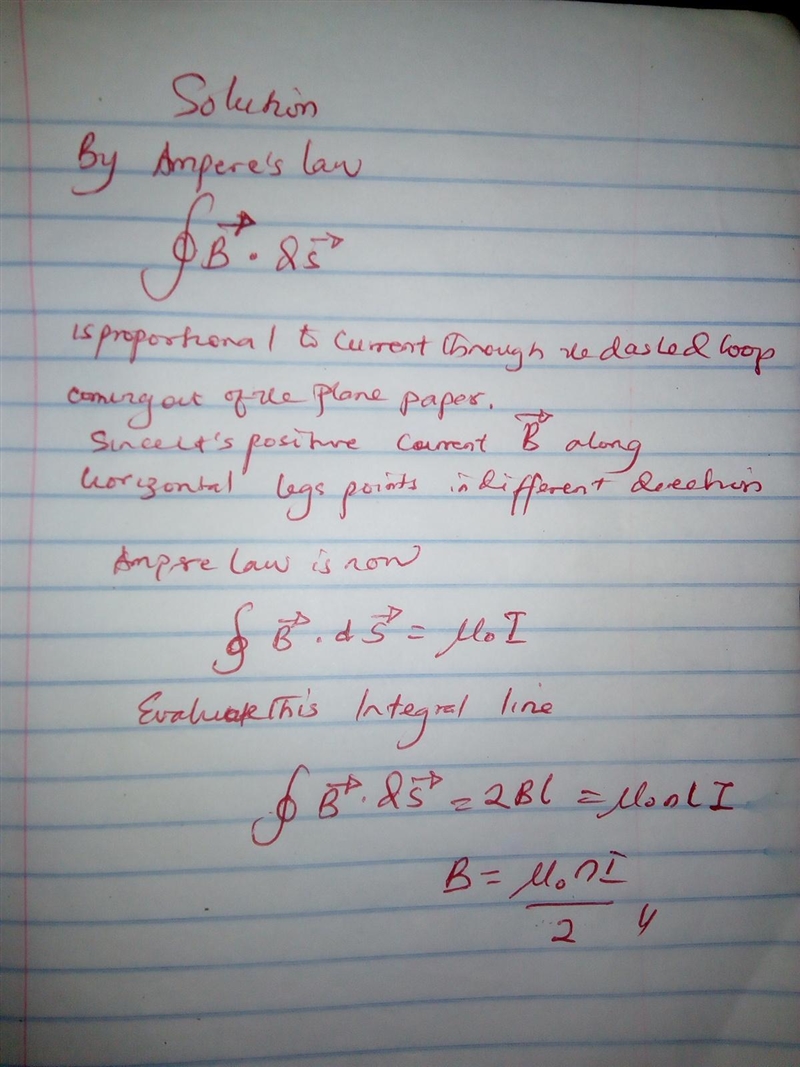 Solution
By Ampere's law
∮ B⃗ . ds⃗
is proportional to current through the dashed loop
coming out of the plane paper.
Since it's positive current B⃗ along
horizontal legs points in different directions
Ampre law is now
∮ B⃗ . dS⃗ = μ₀ I
Evaluate This Integral line
∮ B⃗ . ds⃗ = 2Bl = μ₀nlI
B = μ₀nI
2